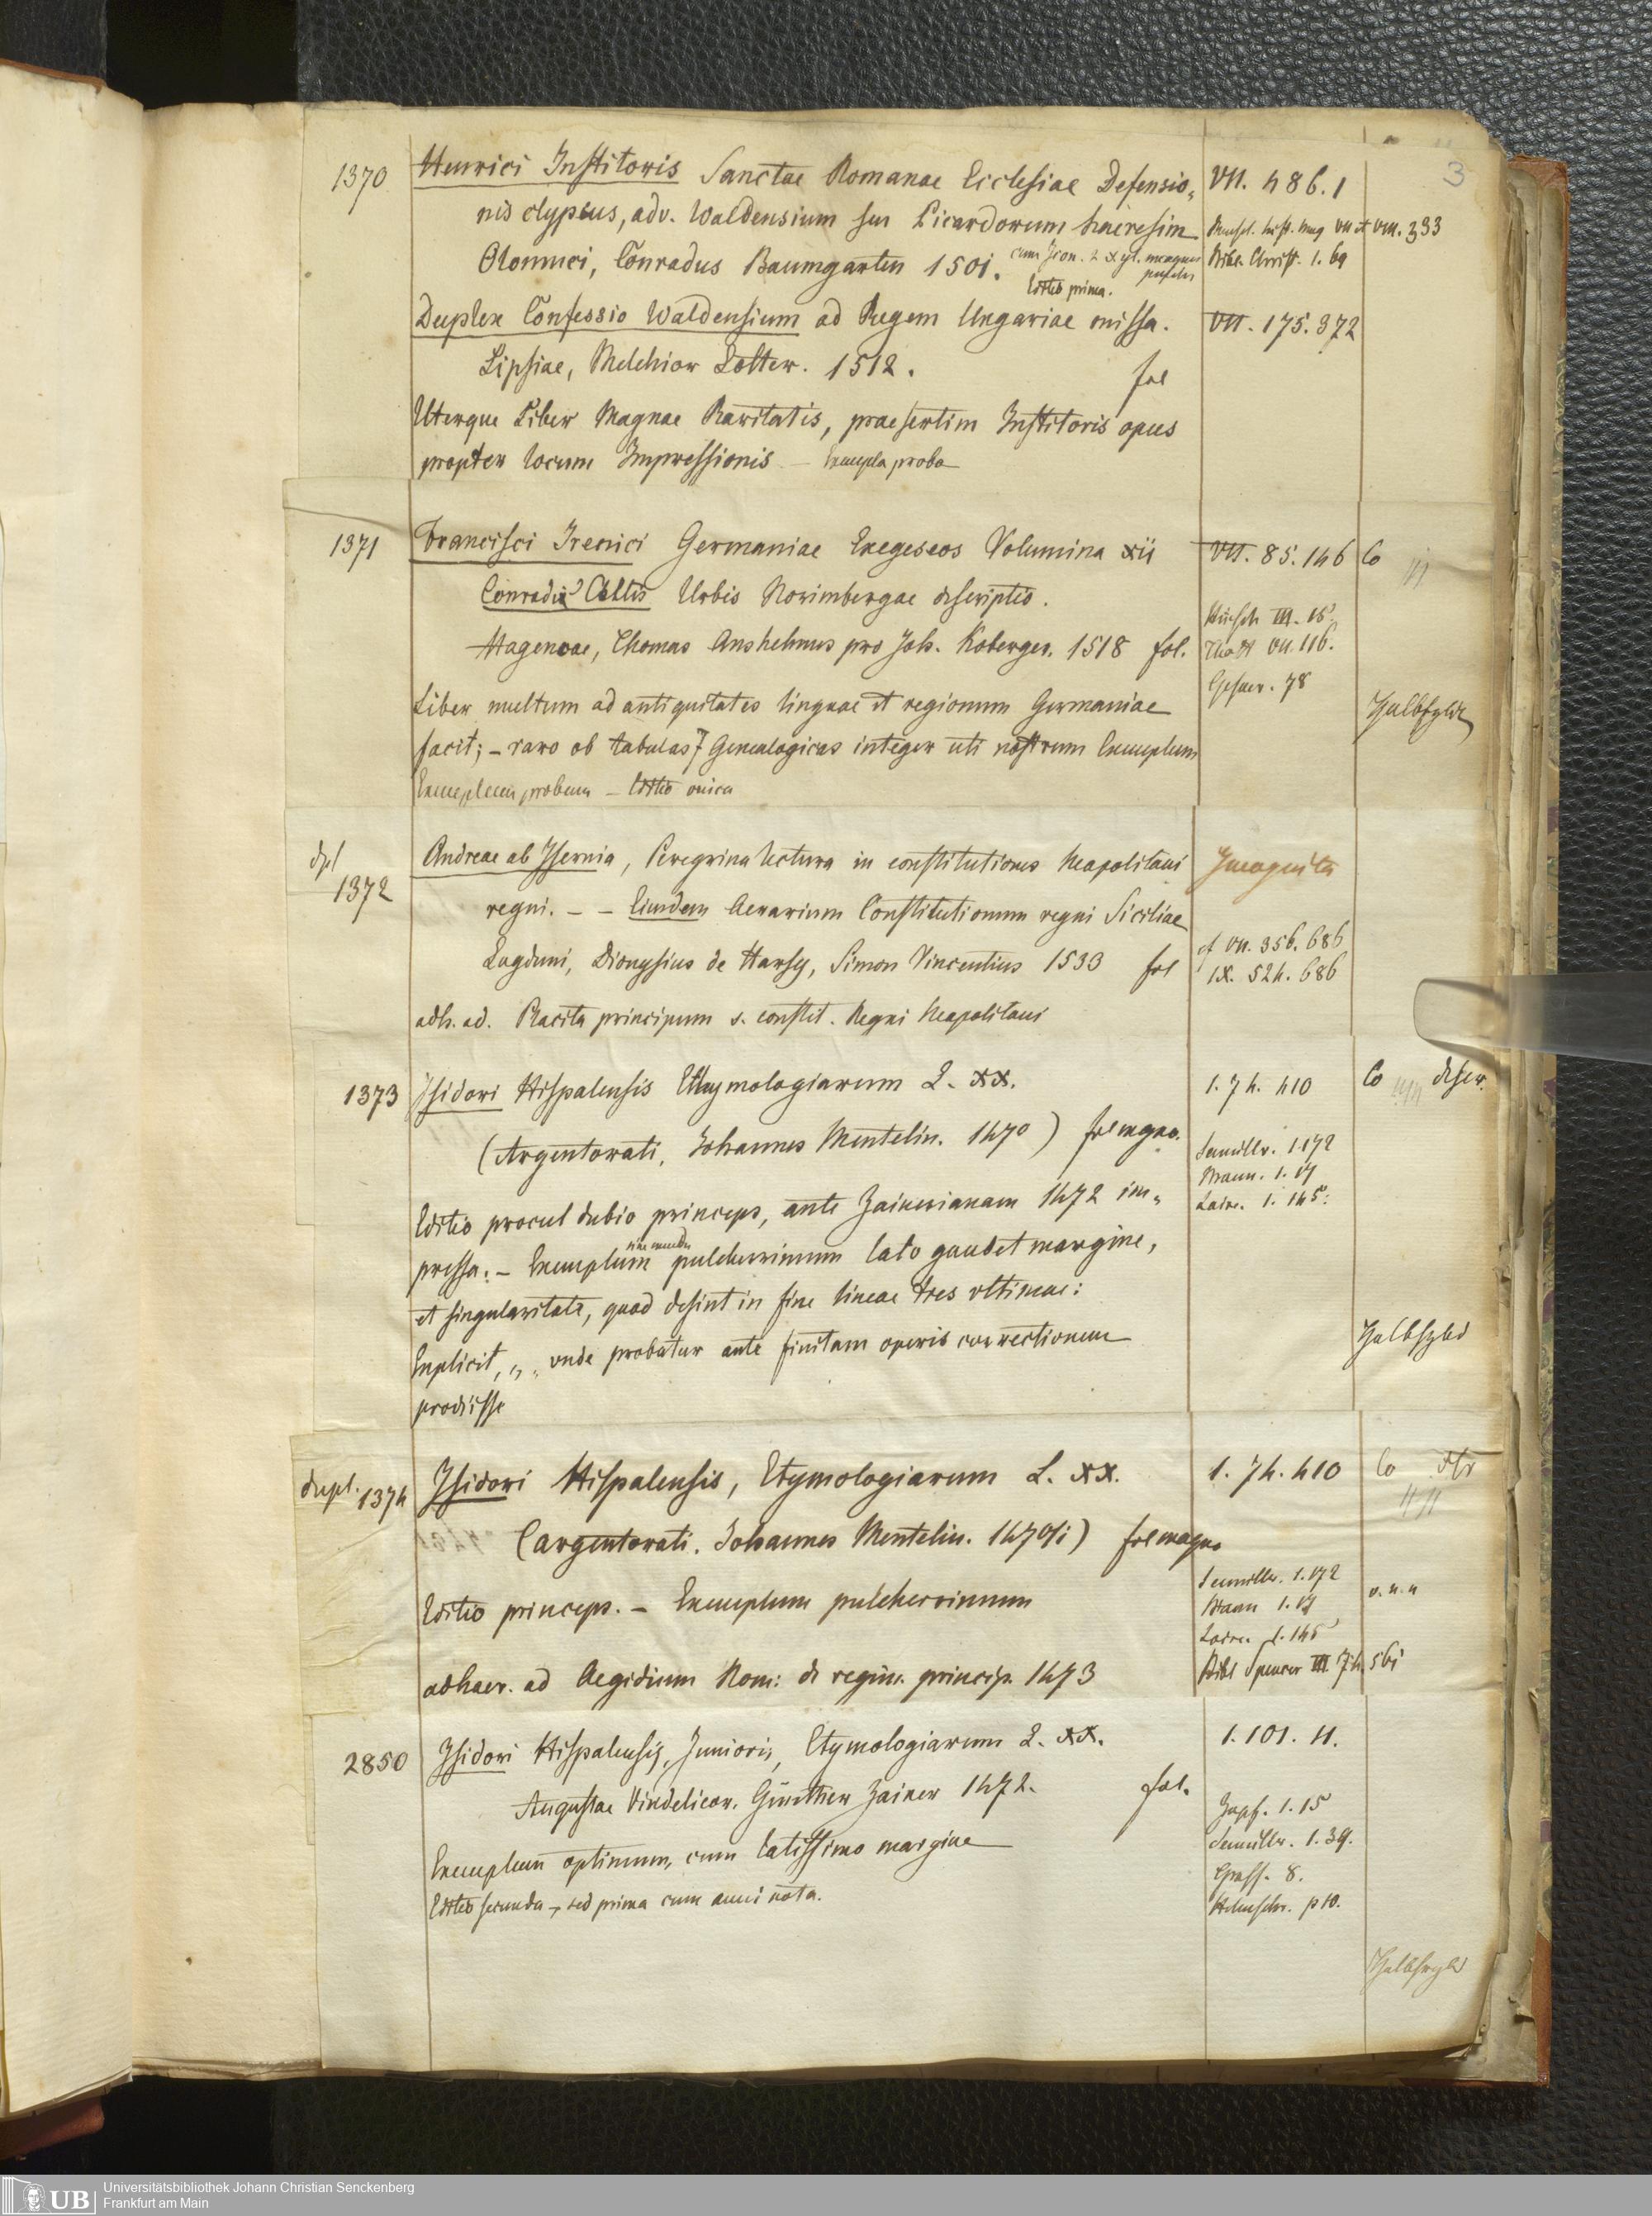 3
1370 Henrici Institoris Sanctae Romanae Ecclesiae Defensio= VII. 486. 1
nis clypeus, adv. Waldensium seu Picardorum haeresim hist. mag VII et VIII. 333
Olomuci, Conradus Baumgarten 1501. cum Icon. 2 xyl. Bibl. Christ. 1. 69
Editio prima.
Duplex Confessio Waldensium ad Regem Ungariae missa. VII. 175. 372
Lipsiae, Melchior Lotter. 1512. fol
Uterque Liber Magnae Raritatis, praesertim Institoris opus
propter locum Impressionis — Exempla proba
1371 Francisci Irenici Germaniae Exegeseos Volumina xii VII. 85. 146 Co
Conradi Celtis Urbis Norimbergae descriptio.
Hirsch III. 15.
Hagenoae, Thomas Anshelmus pro Joh. Koberger. 1518 fol. Thott VII. 116.
Gesner. 78
Liber multum ad antiquitates linguae et regionum Germaniae Halbfzbd
facit; – raro ob tabulas 7 Genealogicas integer uti nostrum Exemplum
Exemplum probum – Editio unica
dpl
1372 Andreae ab Isernia, Peregrina lectura in constitutiones Neapolitani Incognita
regni. – – Eiusdem Aerarium Constitutionum regni Siciliae
cf VII. 356. 686
Lugduni, Dionysius de Harsy, Simon Vincentius 1533 fol IX. 524. 686
adh. ad. Placita principum s. constit. Regni Neapolitani
1373 Isidori Hispalensis Ethymologiarum L. XX. 1. 74. 410 Co defer.
(Argentorati, Johannes Mentelin. 1470) fol magno. Seemiller. 1. 172
Braun. 1. 17
Laire. 1. 145.
Editio procul dubio princeps, ante Zainerianam 1472 im=
pressa. – Exemplum pulcherrimum lato gaudet margine,
et singularitate, quod desint in fine lineae tres ultimae:
Explicit, „ „ unde probatur ante finitam operis correctionem Halbfzbd
prodiisse
dupl. 1374 Isidori Hispalensis, Etymologiarum L. XX. 1. 74. 410 Co
(argentorati. Johannes Mentelin. 1470/i) fol magno
Seemiller. 1. 172
Editio princeps. – Exemplum pulcherrimum Braun 1. 17
Laire. 1. 145
adhaer. ad Aegidium Rom: de regim. princip. 1473 Bibl Spencer III 74. 561
2850 Isidori Hispalensis, Junioris, Etymologiarum L. XX. 1. 101. 11.
Augustae Vindelicor. Günther Zainer 1472. fol. Zapf. 1. 15
Exemplum optimum, cum latissimo margine Seemiller. 1. 39.
8.
Editio secunda –, sed prima cum anni nota. p 10.
Halbfrzbd
UB Universitätsbibliothek Johann Christian Senckenberg
Frankfurt am Main